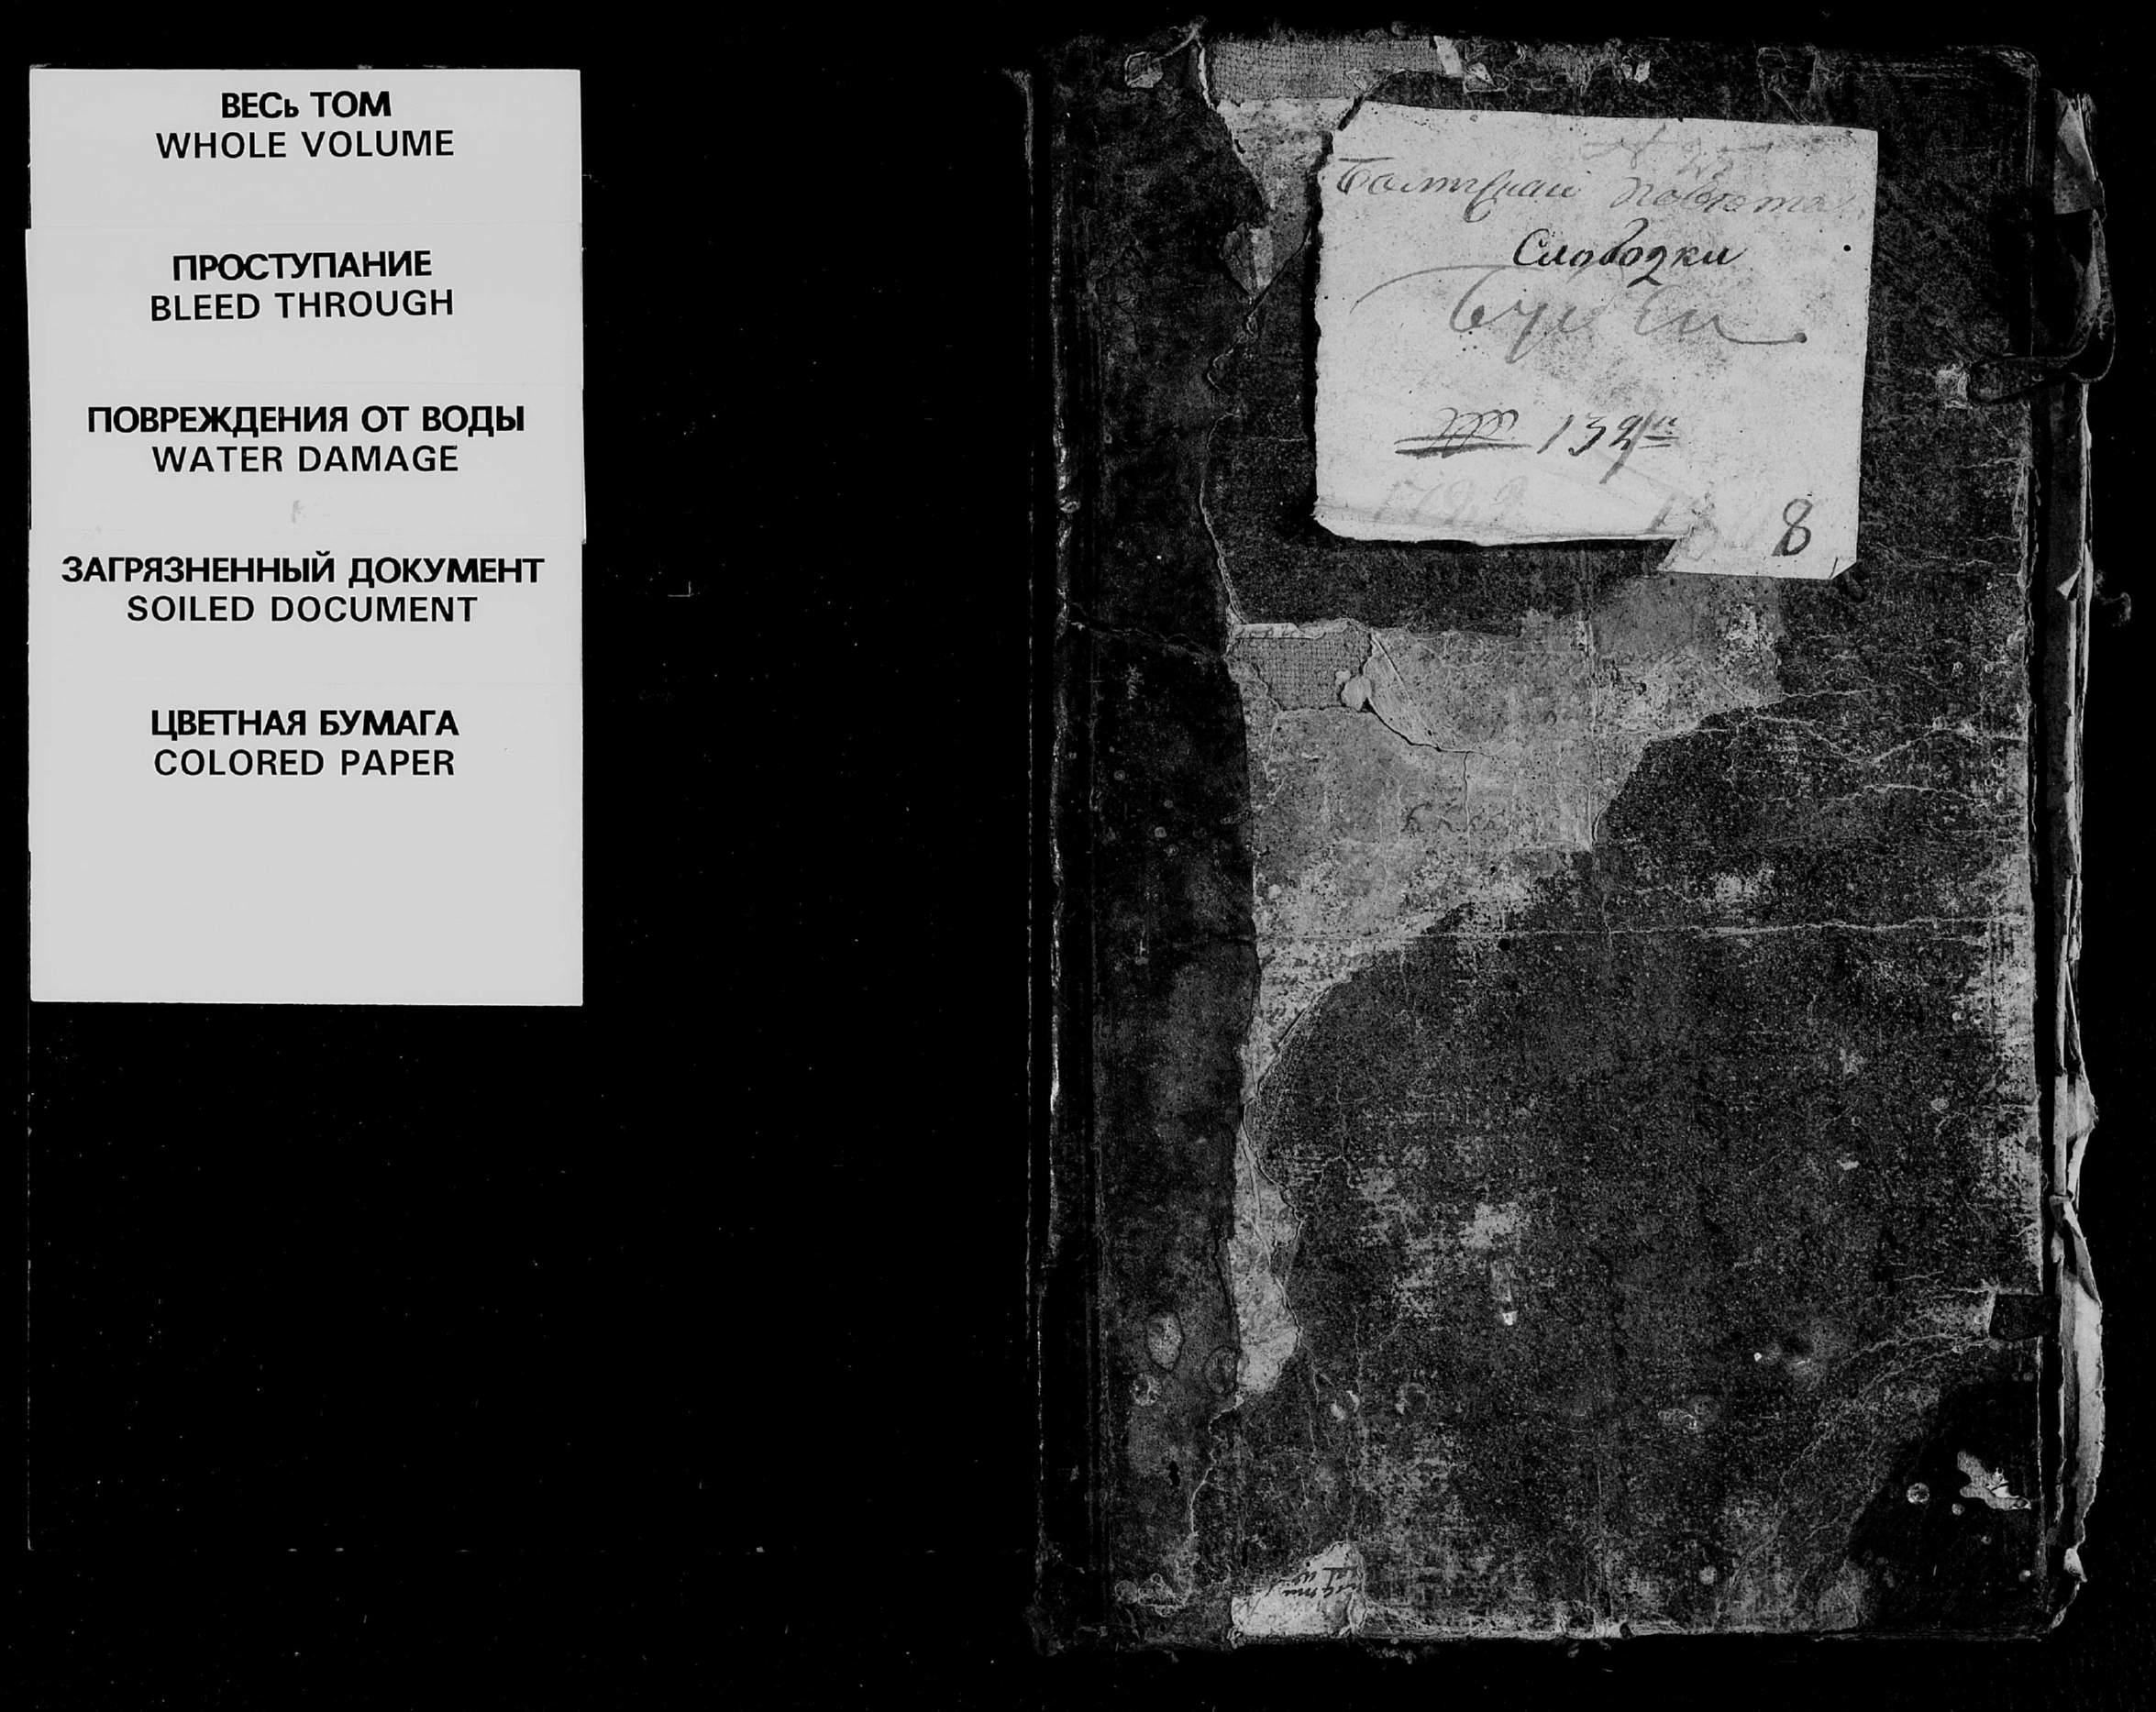 ВЕСЬ ТОМ
WHOLE VOLUME
ПРОСТУПАНИЕ
BLEED THROUGH
ПОВРЕЖДЕНИЯ ОТ ВОДЫ
WATER DAMAGE
ЗАГРЯЗНЕННЫЙ ДОКУМЕНТ
SOILED DOCUMENT
ЦВЕТНАЯ БУМАГА
COLORED PAPER
повета
Слободки
8